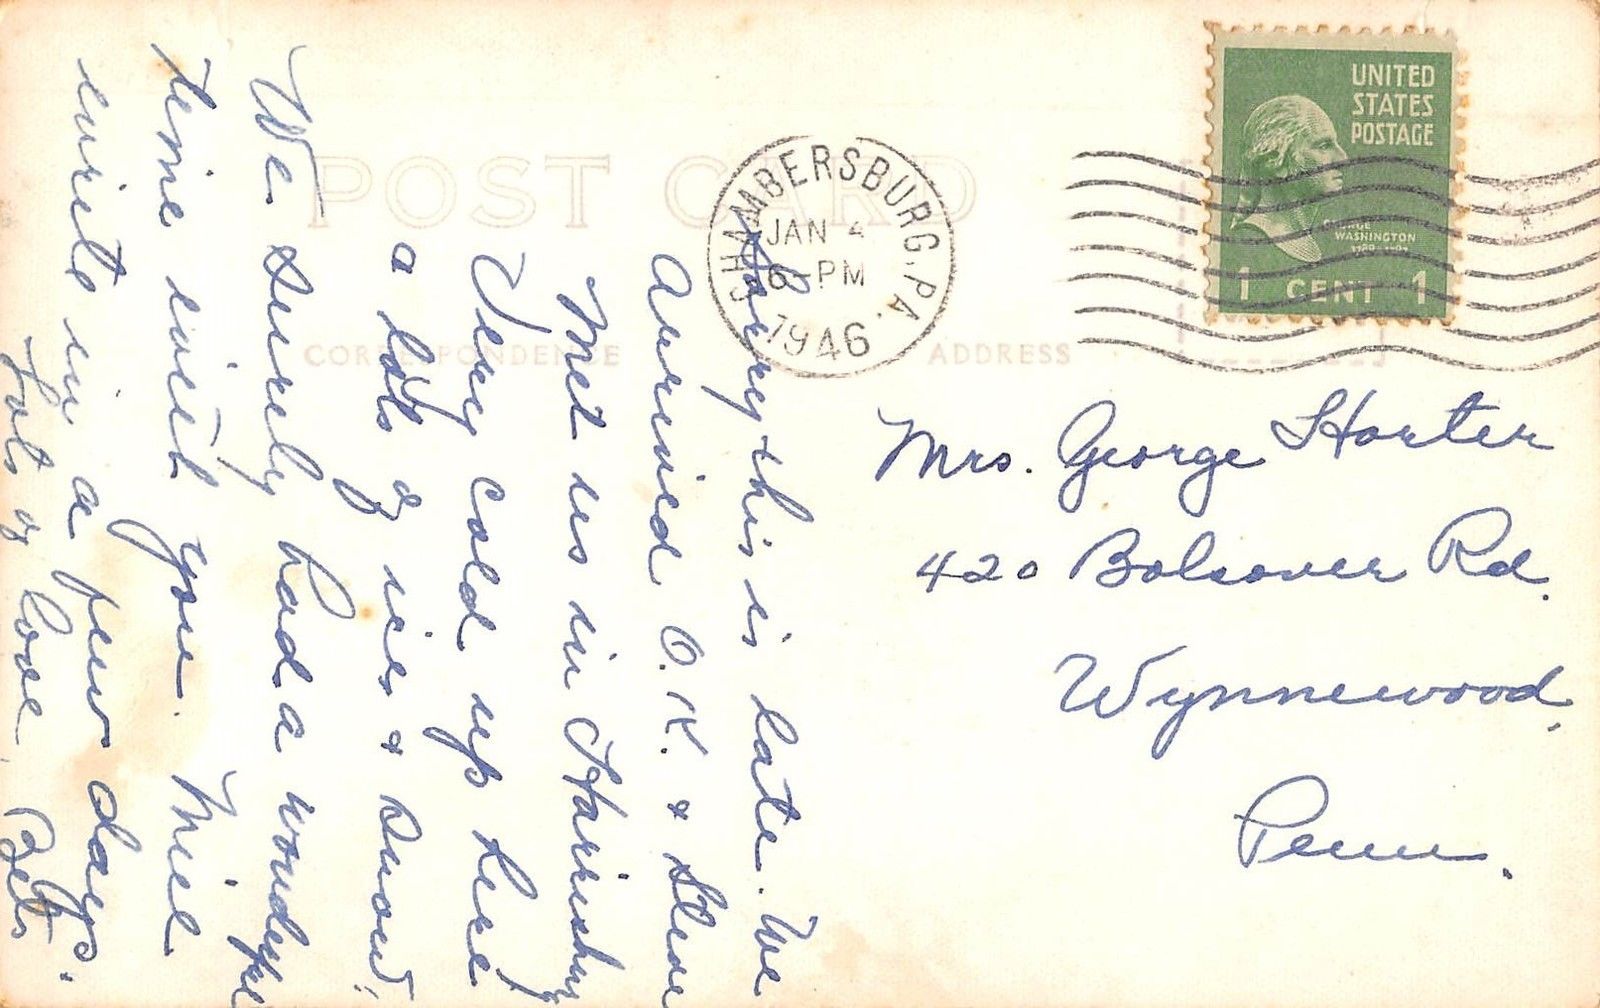 POST CARD
CORRESPONDENCE
ADDRESS
UNITED
STATES
POSTAGE
GEORGE
WASHINGTON
1789-1797
1 CENT 1
CHAMBERSBURG, PA.
JAN 4
6-PM
1946
Sorry this is late. We
Arrived O.K. &
Met us in Harrisburg
Very cold up here
a lots of ice & snow.
We surely had a wonderful
time with you. Will
write in a few days.
Lots of love,
Mrs. George Harter
420 Bolsover Rd.
Wynnewood,
Penn.